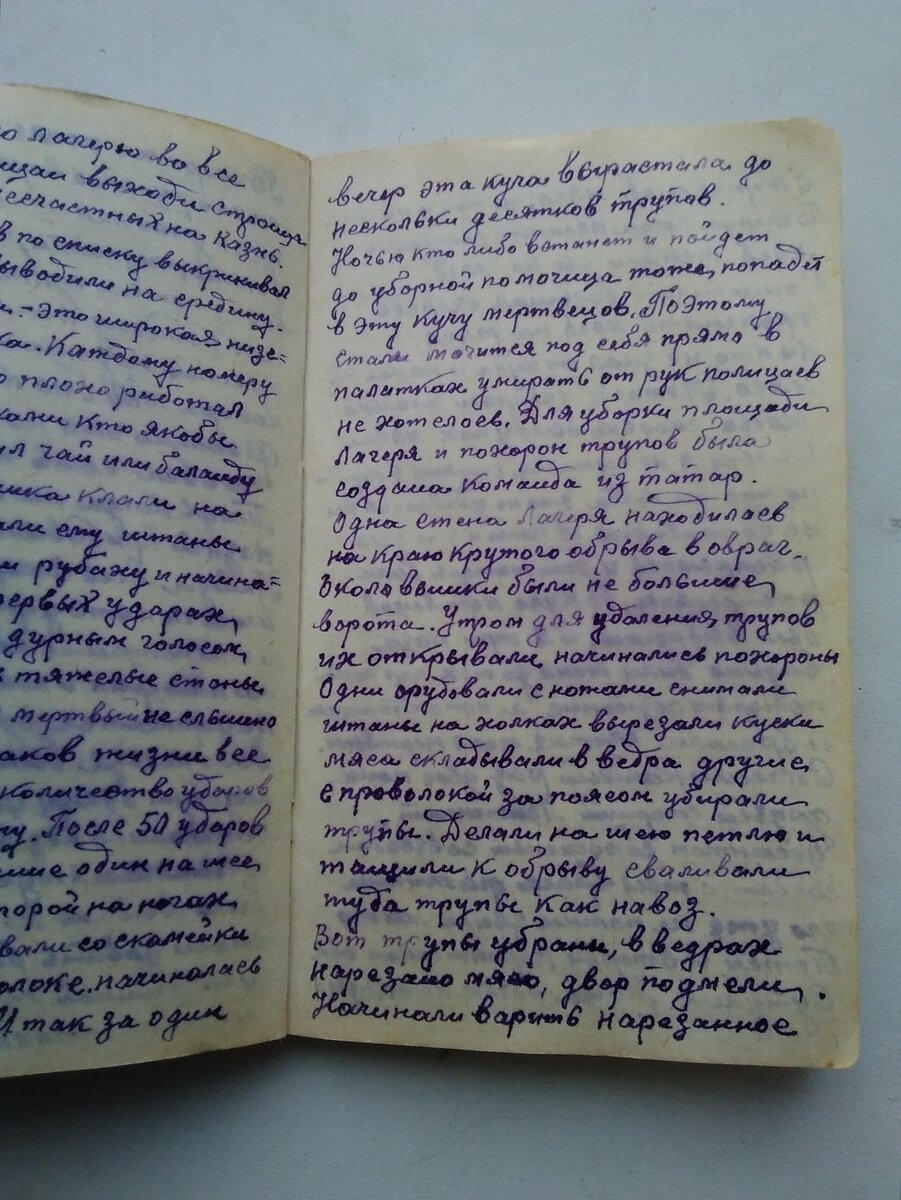 ю лагерю во все
ицаи выходи строица
несчастных на казнь.
в по списку выкрикивал
выводили на средину.
и. - это широкая, низе-
ка. Каждому номеру
о плохо работал
кто якобы
ил чай или баланду
клали на
али ему штаны
и рубаху и начина=
первых ударах
дурным голосом,
тяжелые стоны,
мертвый не слышно
аков жизни все
количество ударов
ну. После 50 ударов
один на шее,
торой на ногах
вали со скамейки
олоке. начиналась
И так за один
вечер эта куча вырастала до
нескольки десятков трупов.
Ночью кто либо встанет и пойдет
до уборной помочица тоже, попадет
в эту кучу мертвецов. Поэтому
стали мочится под себя прямо в
палатках умирать от рук полицаев
не хотелось. Для уборки площади
лагеря и похорон трупов была
создана команда из татар.
Одна стена лагеря находилась
на краю крутого обрыва в овраг.
Около вышки были не большие,
ворота. Утром для удаления, трупов
их открывали, начинались похороны
Одни орудовали с ножами снимали
штаны на холках вырезали куски
мяса складывали в ведра другие,
с проволокой за поясом убирали
трупы. Делали на шею петлю и
тащили к обрыву сваливали
туда трупы как навоз.
Вот трупы убрани, в ведрах
нарезано мясо, двор подмели,.
Начинали варить нарезанное